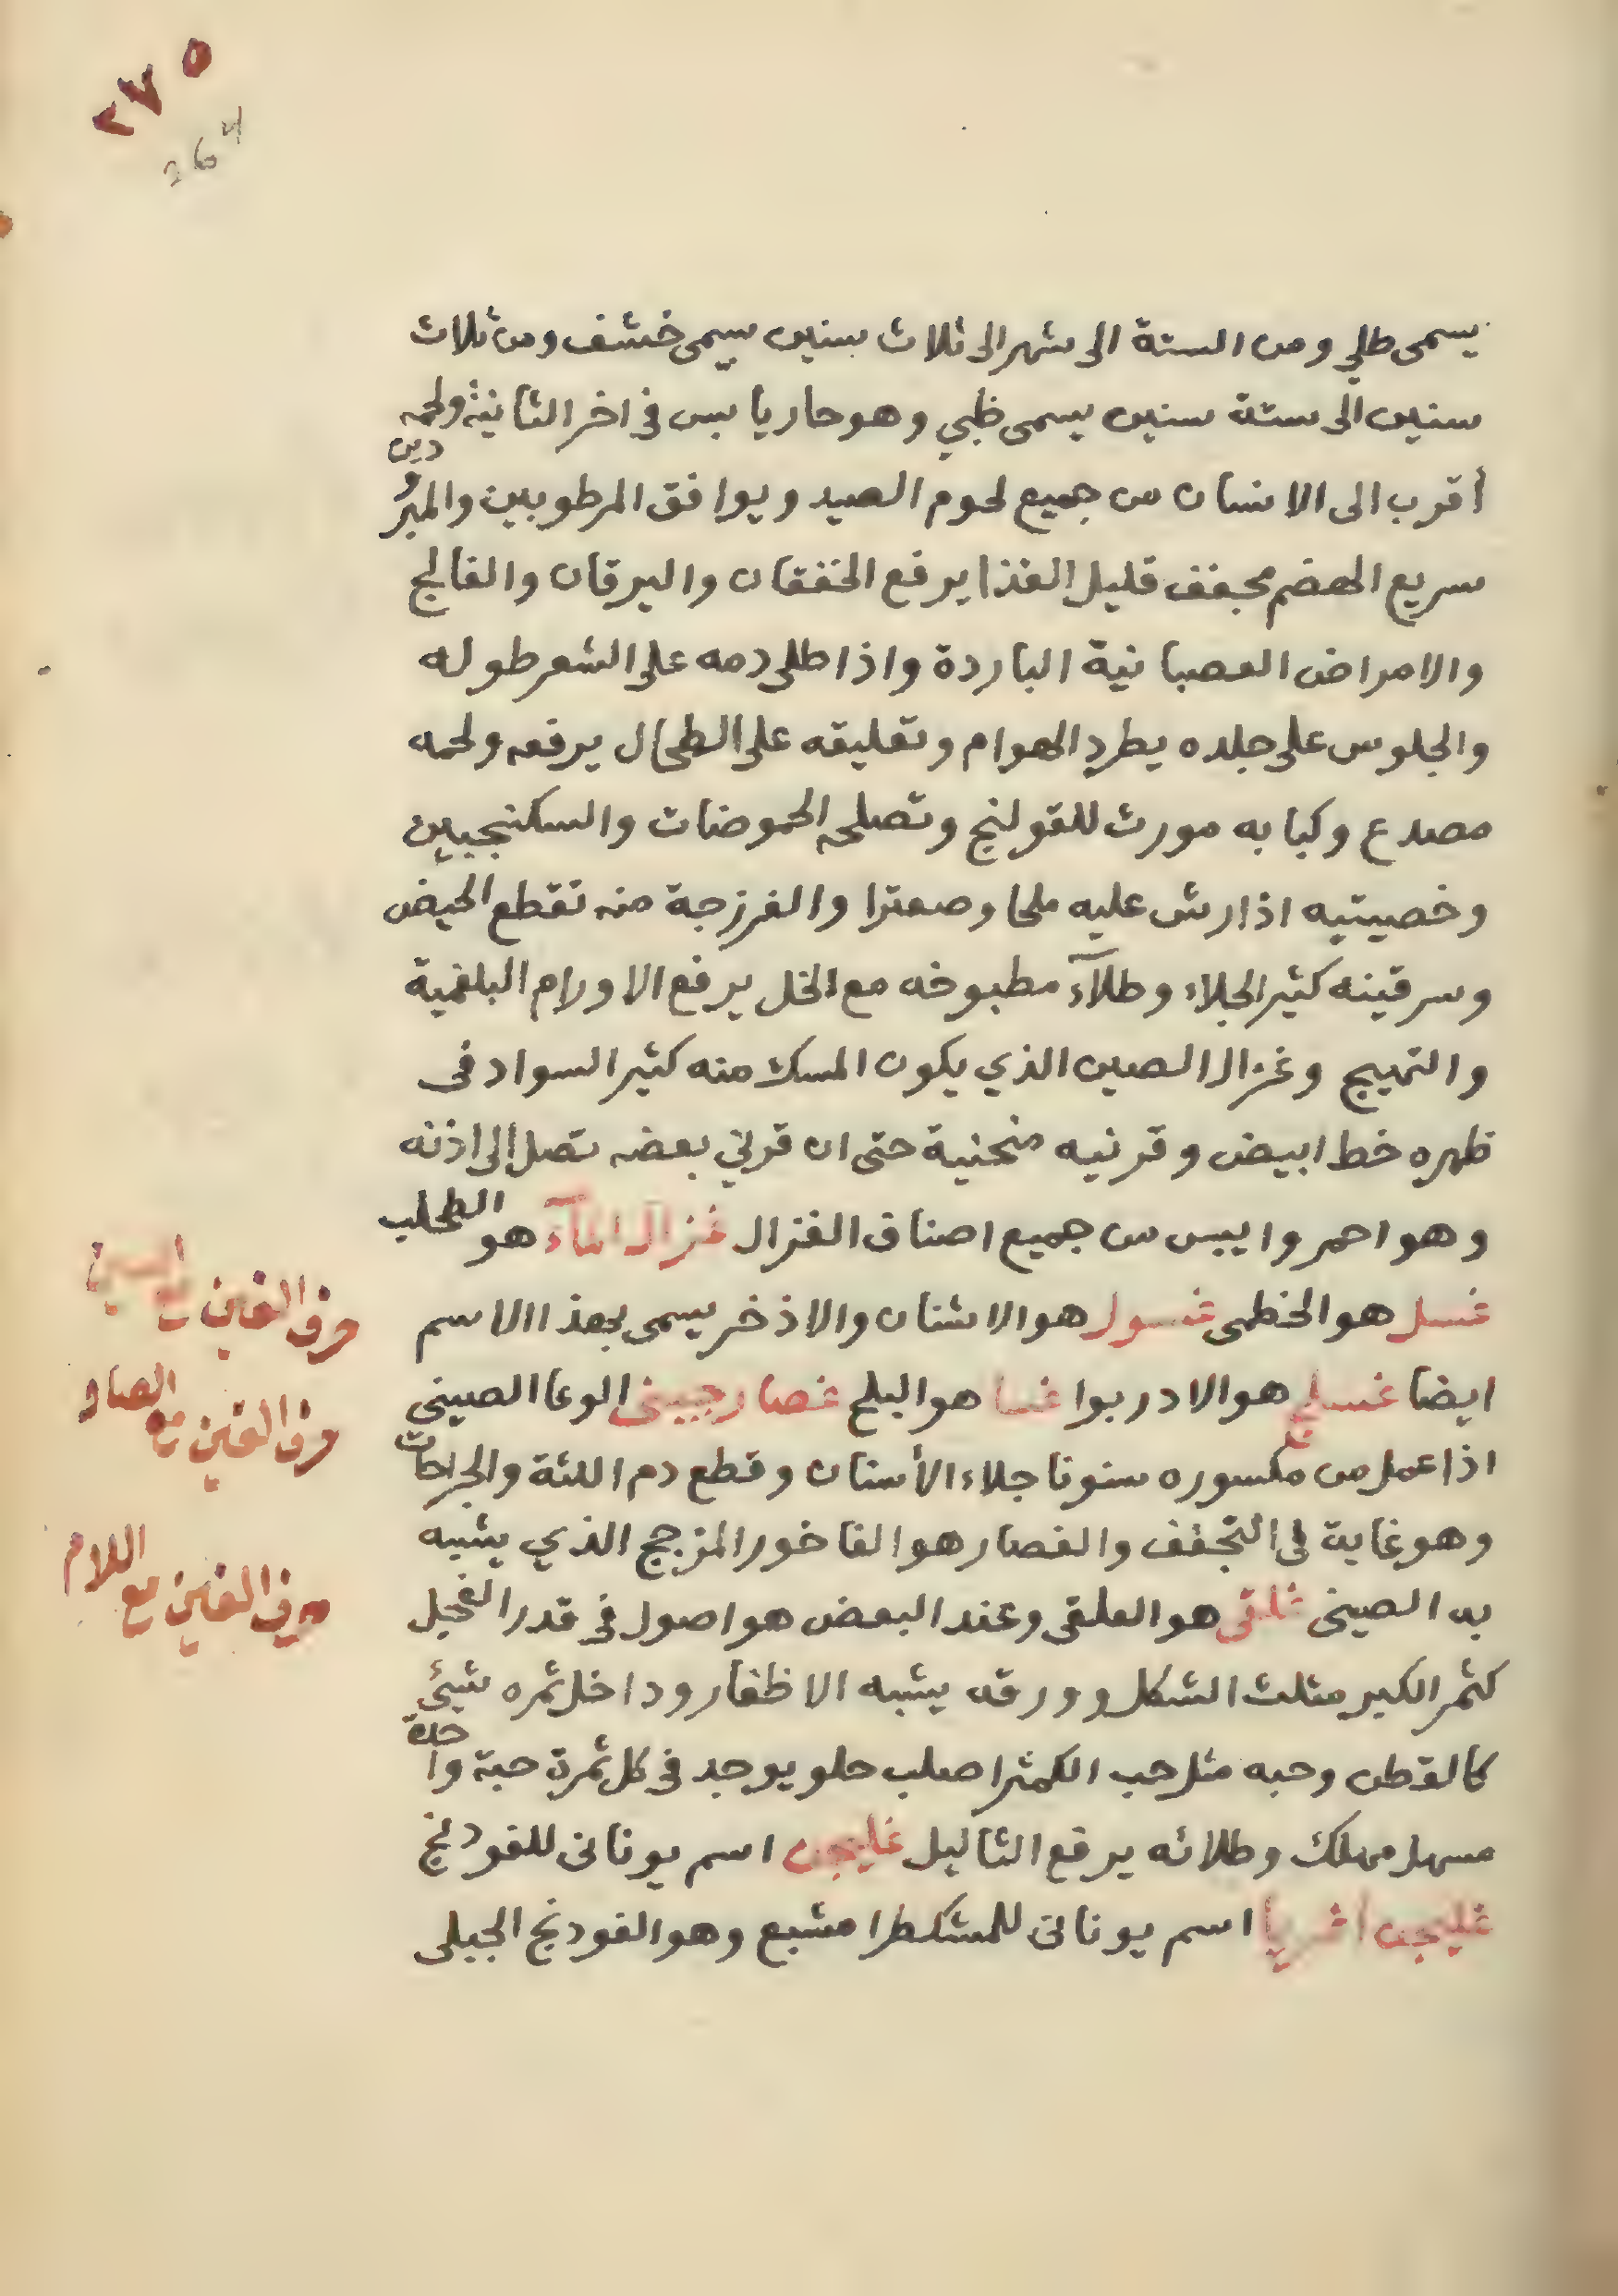 ٢٧٥
264
يسمى طلي ومن الستة الى شهر الى ثلاث سنين سيمى خشف ومن ثلاث
سنين الى ستة سنين يسمى ظبي وهو حار يابس في اخر الثانية ولحمه
أقرب الى الانسان من جميع لحوم الصيد ويوافق المرطوبين والمبرودين
سريع الهضم مجفف قليل الغذا يرفع الخفقان واليرقان والفالج
والامراض العصبانية الباردة واذا طلى دمه على الشعر طوله
والجلوس على جلده يطرد الهوام وتعليقه على الطحال يرفعه ولحمه
مصدع وكبابه مورث للقولنج وتصلحه الحموضات والسكنجبين
وخصيتيه اذا رش عليه ملحا وصعترا والفرزجة منه تقطع الحيض
وسرقينه كثير الجلاء وطلآء مطبوخه مع الخل يرفع الاورام البلغمية
والتهيج وغزال الصين الذي يكون المسك منه كثير السواد فى
ظهره خط ابيض وقرنيه منحنية حتى ان قرني بعضه تصل الى اذنه
وهو احمر وايبس من جميع اصناف الغزال غزال المآء هو الطحلب
غسل هو الخطمى غسول هو الاشنان والاذخر يسمى بهذا الاسم
ايضا غسلج هو الادربوا غسا هو البلح غصار جبينى الوعا الصينى
اذا عمل من مكسوره سنونا جلاء الأسنان وقطع دم اللثة والجراحات
وهو غاية فى التجفف والغصار هو الفاخور المزجج الذي يشبه
به الصينى غلقى هو العلقى وعند البعض هو اصول في قدر الفجل
كثمر الكبر مثلث الشكل وورقه يشبه الاظفار وداخل ثمره شيئ
كالقطن وحبه مثل حب الكمثرا صلب حلو يوجد فى كل ثمرة حبة واحدة
مسهل مهلك وطلائه يرفع الثاليل غليجن اسم يونانى للفودنج
غليجن اغريا اسم يونانى للمشكطرا مشبع وهو الفودنج الجبلى
حرف الغين مع السين
حرف الغين مع الصاد
حرف الغين مع اللام